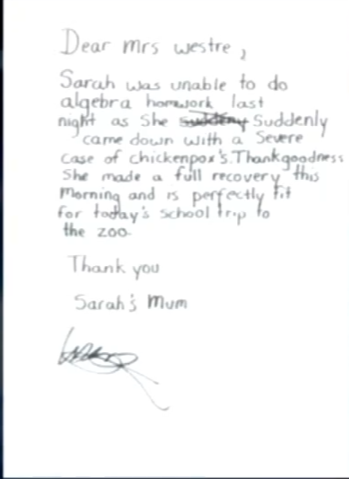 Dear Mrs Westre,
Sarah was unable to do
algebra homework last
night as She suddenly Suddenly
came down with a Severe
case of chickenpox's. Thankgoodness
She made a full recovery this
morning and is perfectly fit
for today's school trip to
the zoo.
Thank you
Sarah's Mum